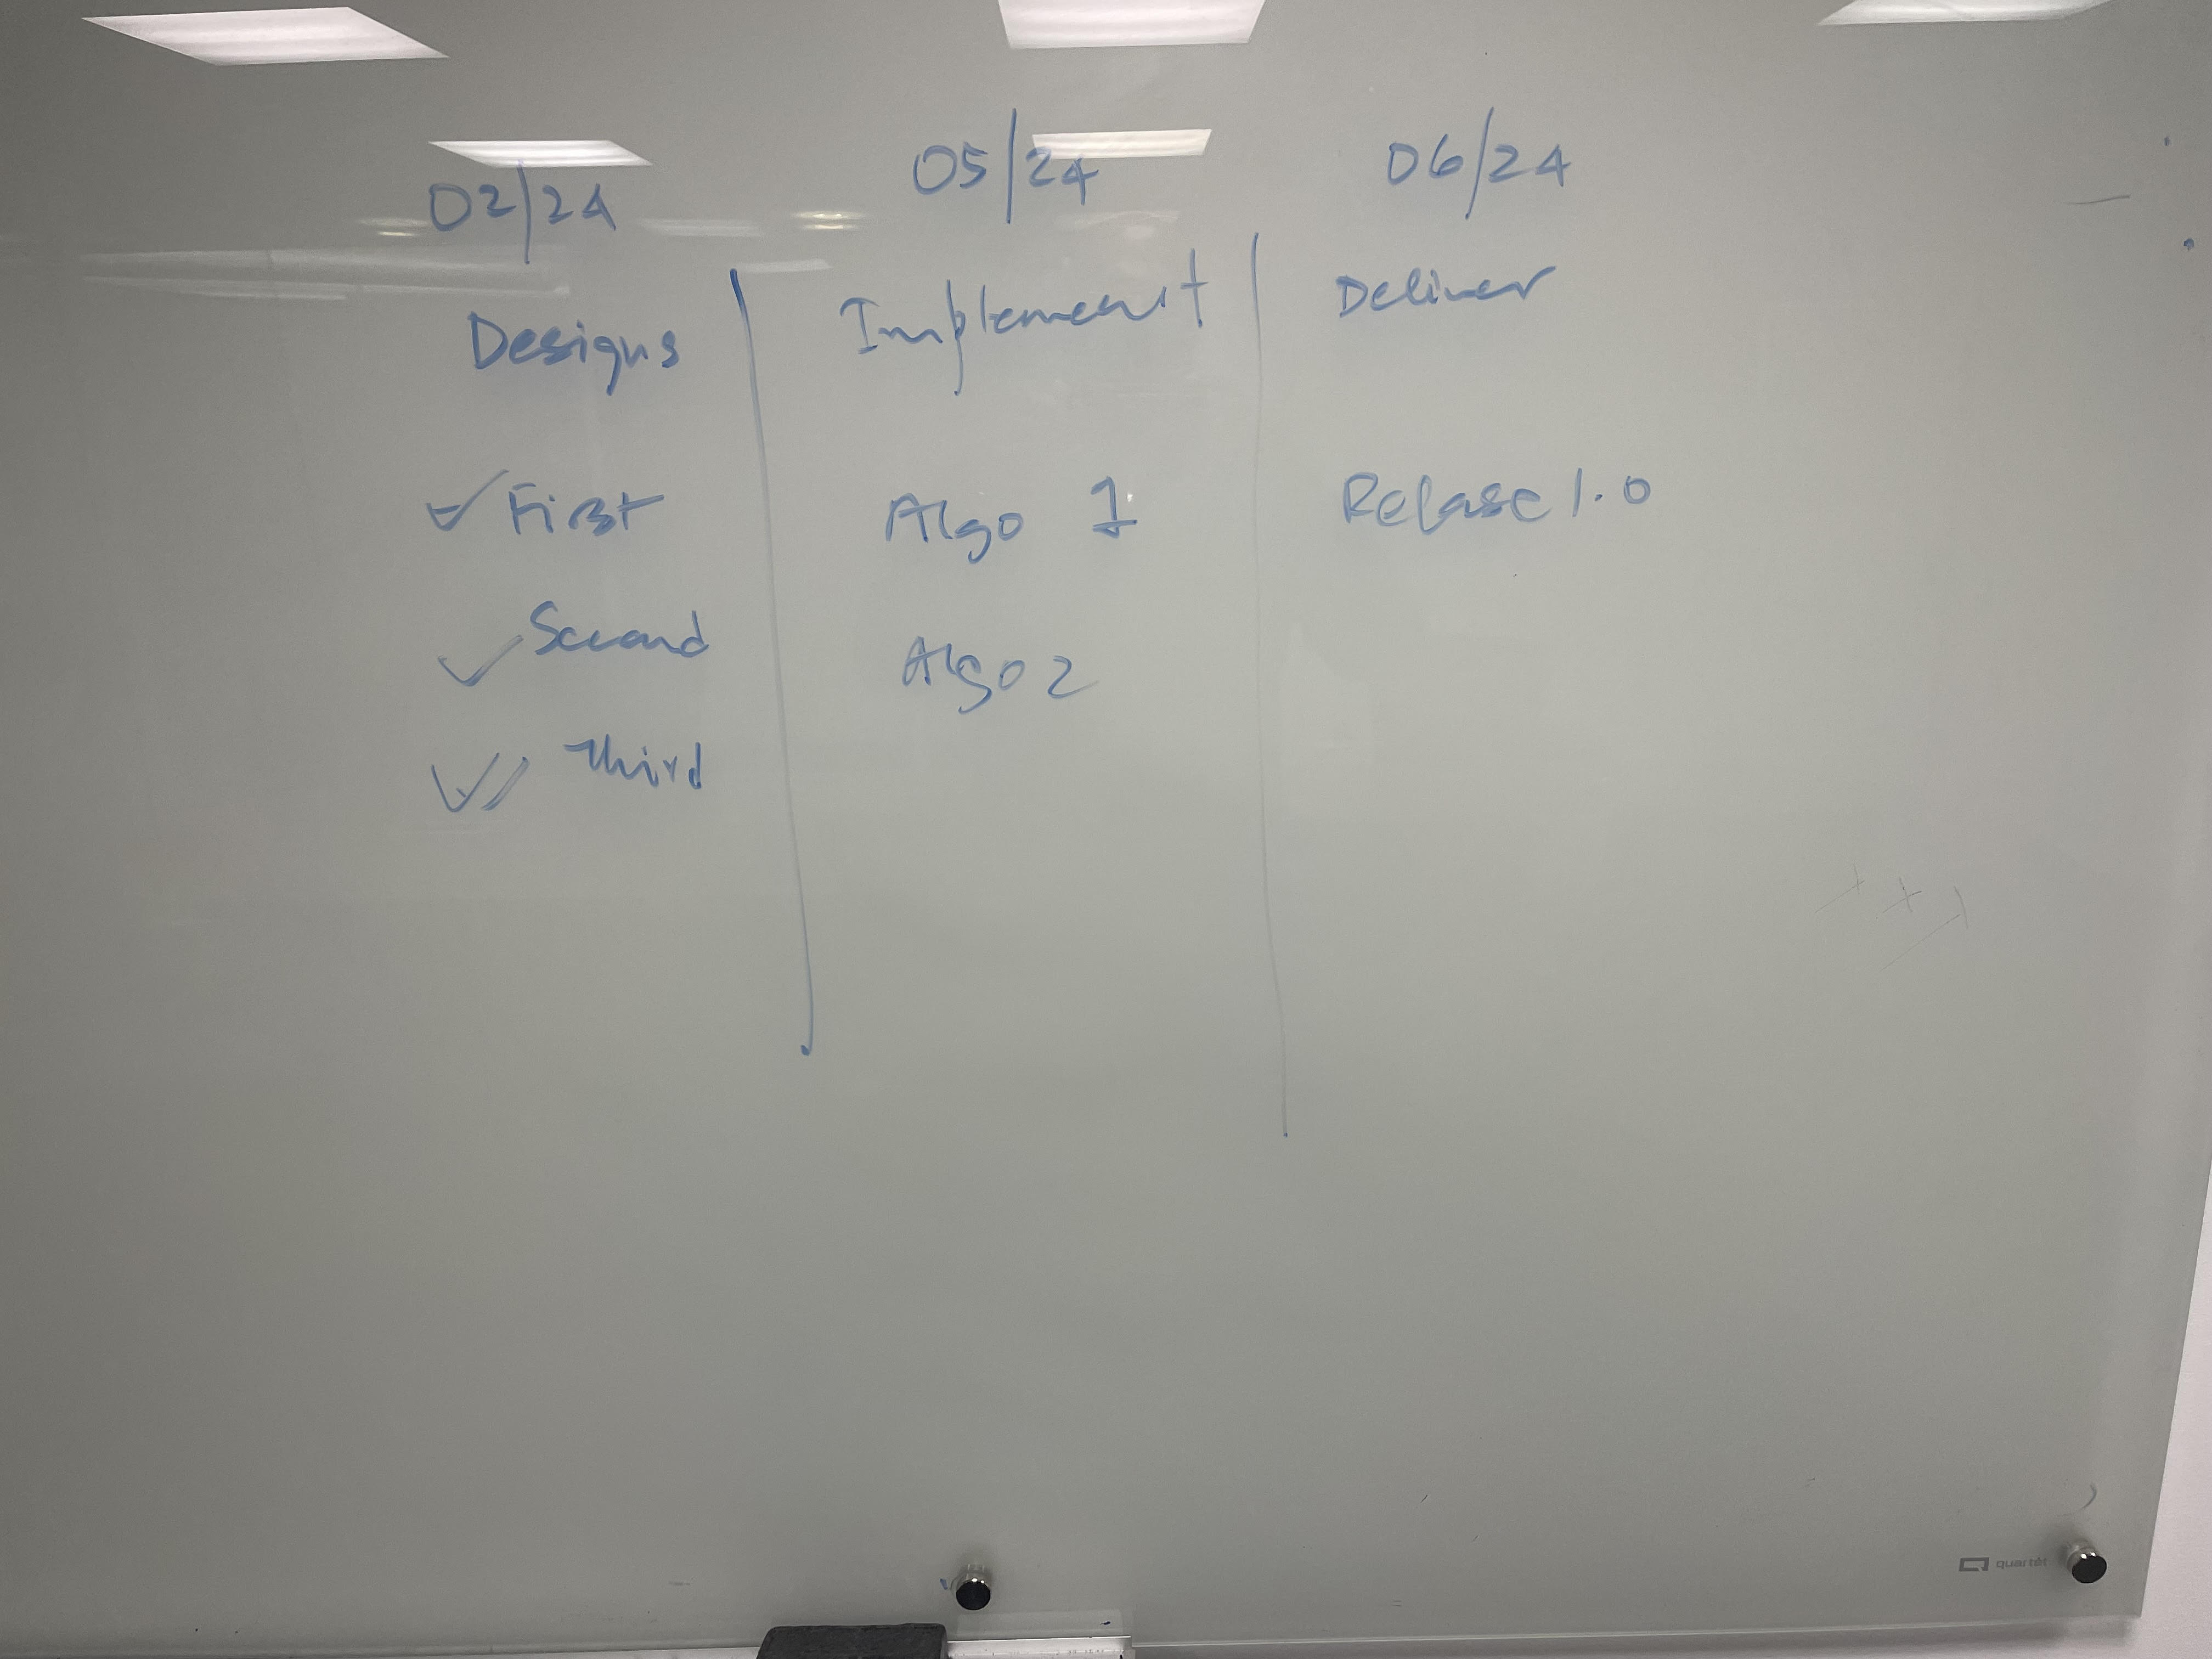 02/24
Designs
✓ First
✓ Second
✓ Third
05/24
Implement
Algo 1
Algo 2
06/24
Deliver
Relase 1.0
quartet